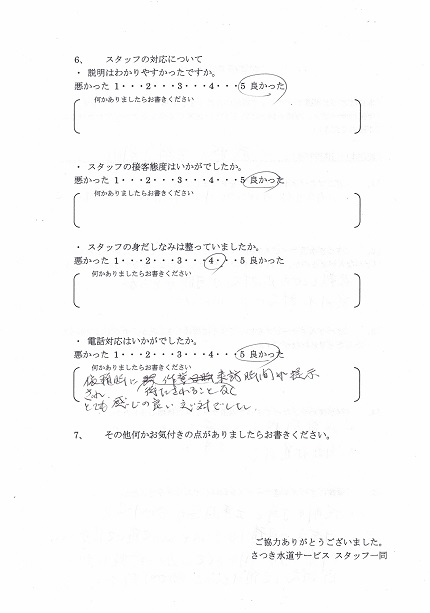 6、　スタッフの対応について
・ 説明はわかりやすかったですか。
悪かった 1・・・2・・・3・・・4・・・5 良かった
何かありましたらお書きください
・ スタッフの接客態度はいかがでしたか。
悪かった 1・・・2・・・3・・・4・・・5 良かった
何かありましたらお書きください
・ スタッフの身だしなみは整っていましたか。
悪かった 1・・・2・・・3・・・4・・・5 良かった
何かありましたらお書きください
・ 電話対応はいかがでしたか。
悪かった 1・・・2・・・3・・・4・・・5 良かった
何かありましたらお書きください
依頼時に 来訪時間が提示
され、待たされること なく
とても感じの良い応対でした。
7、　その他何かお気付きの点がありましたらお書きください。
ご協力ありがとうございました。
さつき水道サービス スタッフ一同